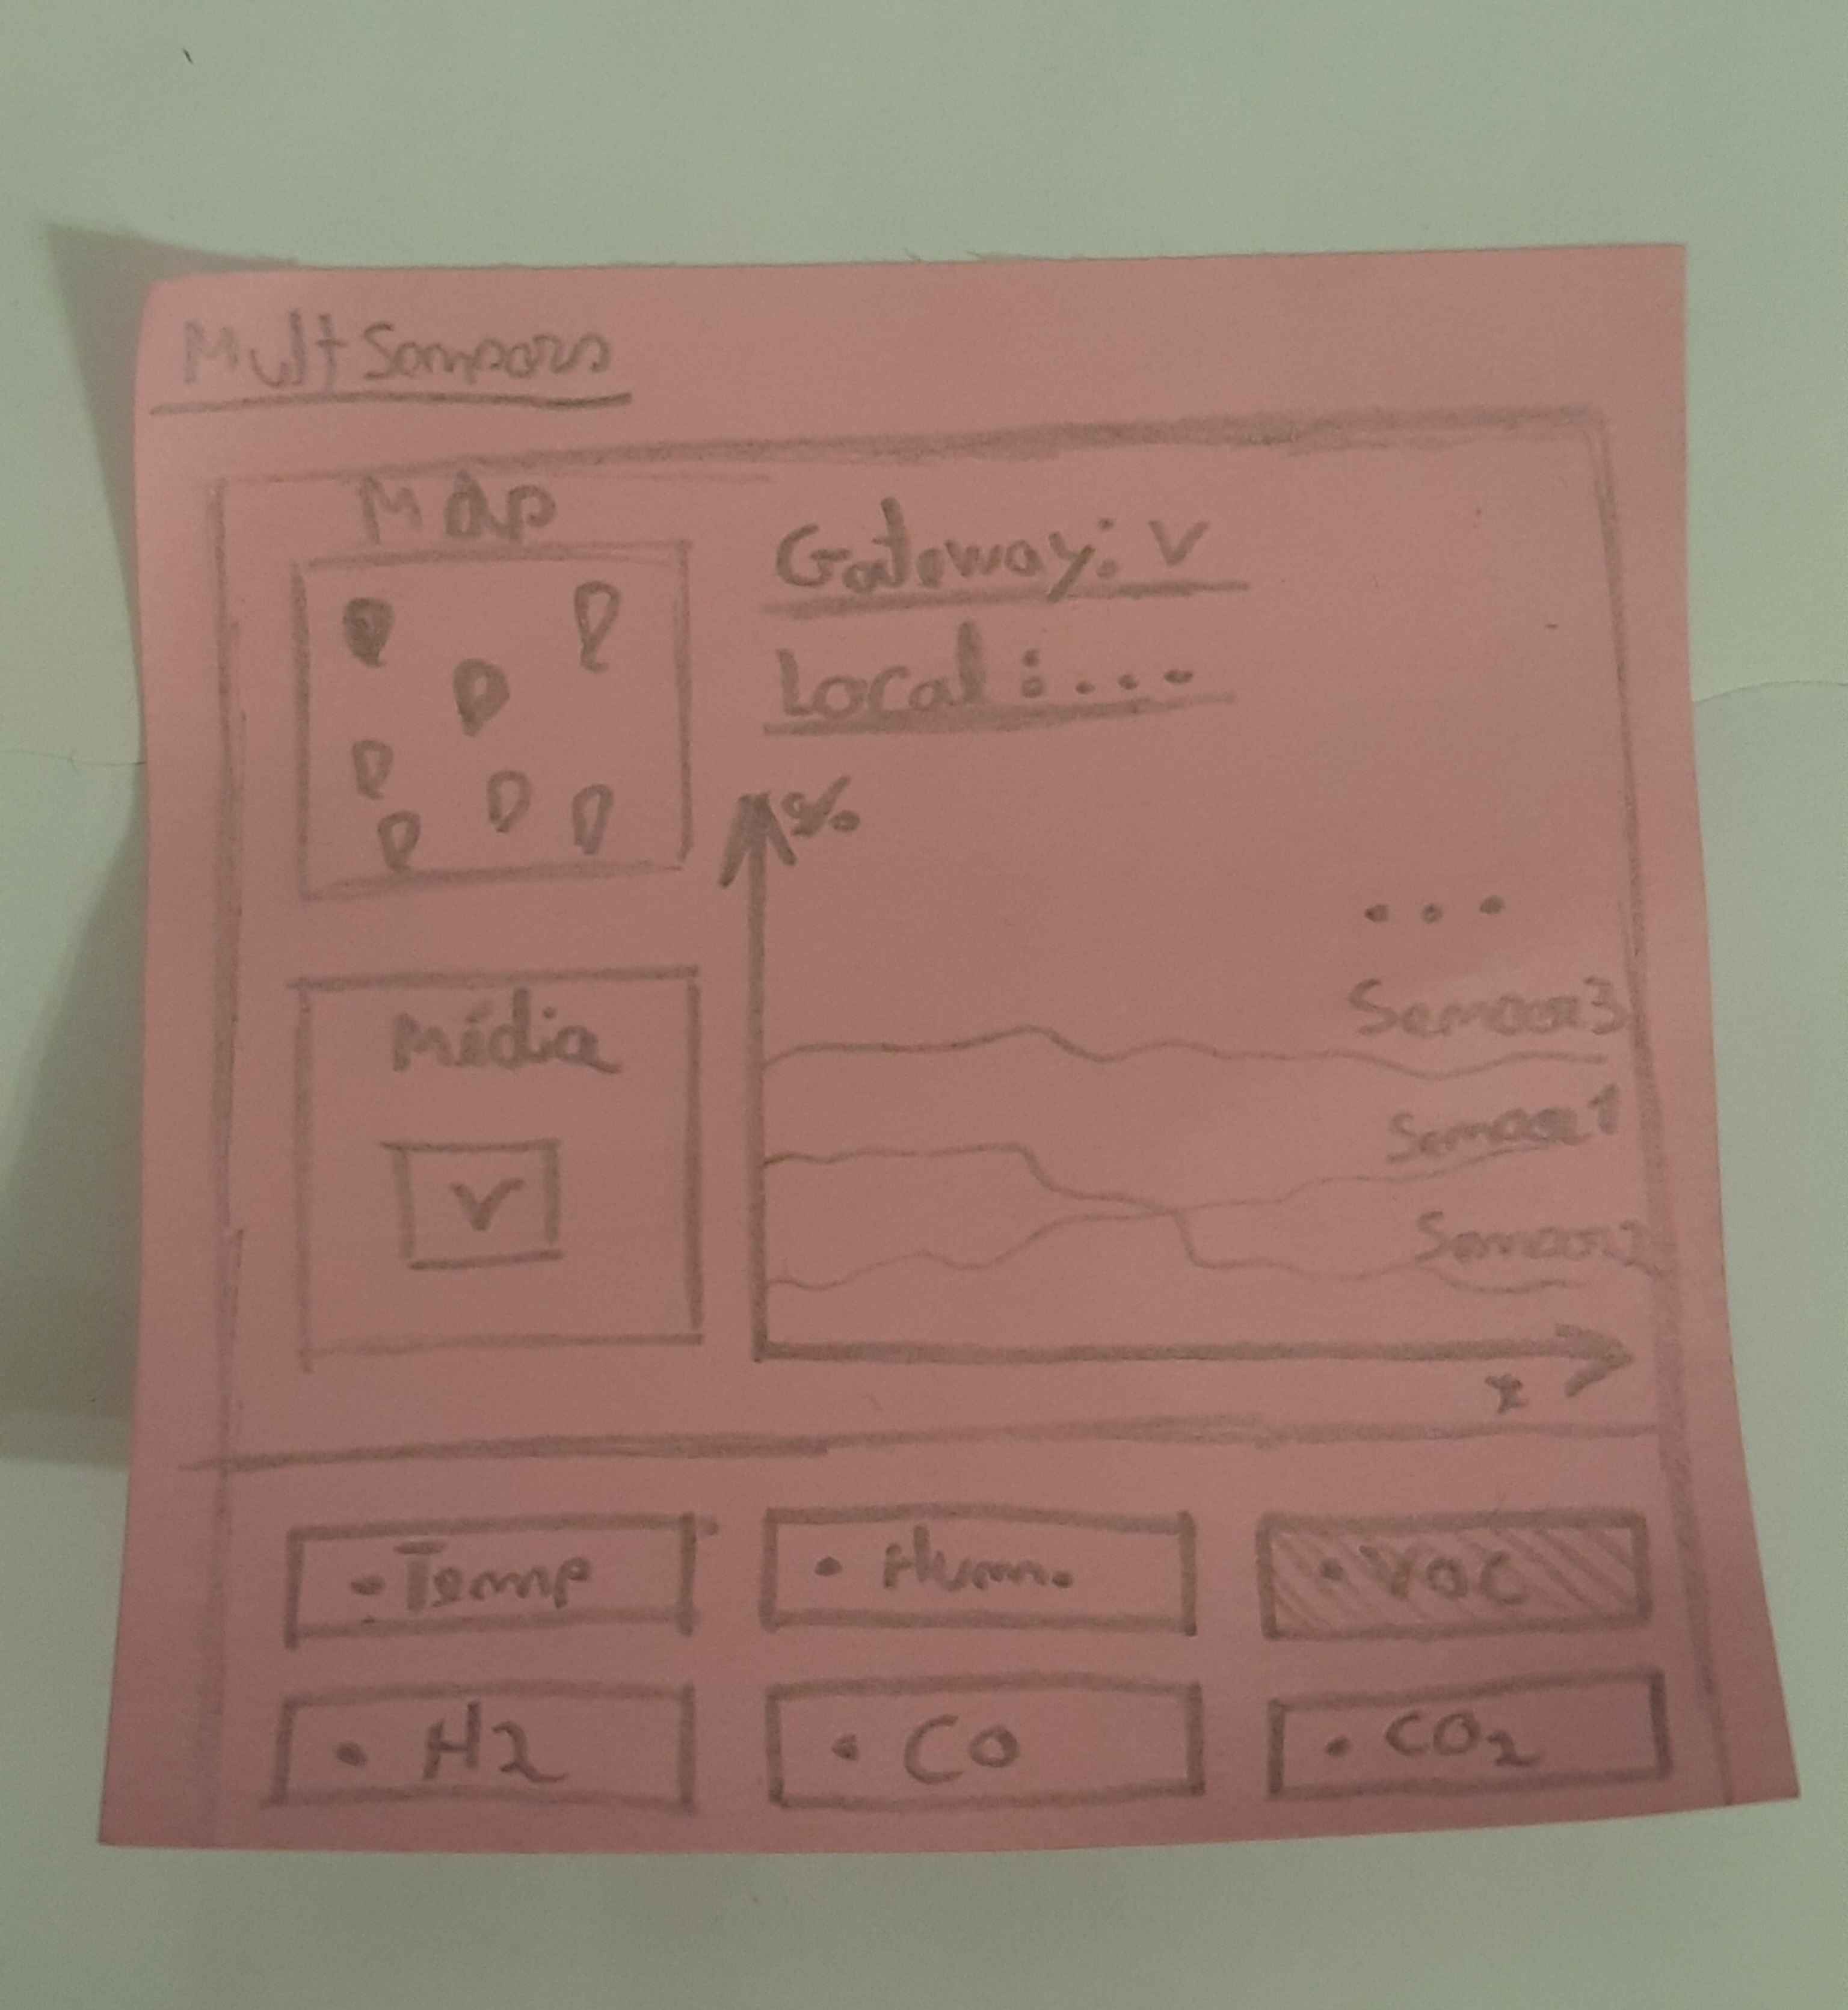 Mult Sensors
Map
Gateway: V
Local : ...
%
...
Sensor 3
Média
Sensor 1
V
Sensor 2
t
• Temp
• Hum.
• VOC
• H2
• CO
• CO₂